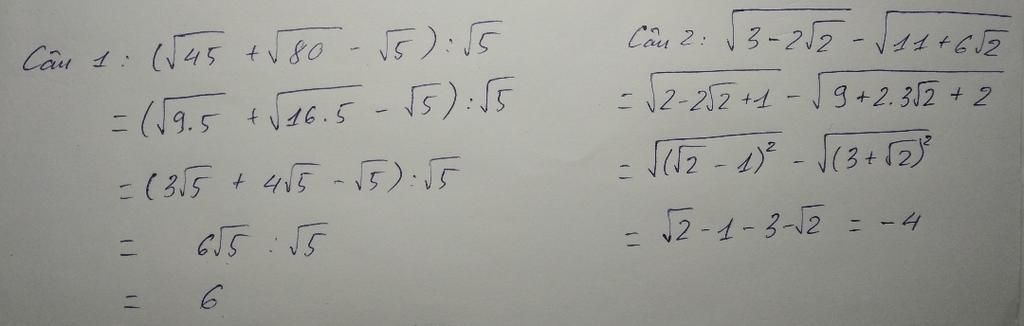 Câu 1 : (√45 + √80 - √5) : √5
= (√9.5 + √16.5 - √5) : √5
= (3√5 + 4√5 - √5) : √5
= 6√5 : √5
= 6
Câu 2 : √(3-2√2) - √(11+6√2)
= √(2-2√2+1) - √(9+2.3√2+2)
= √((√2-1)²) - √((3+√2)²)
= √2-1-3-√2 = -4